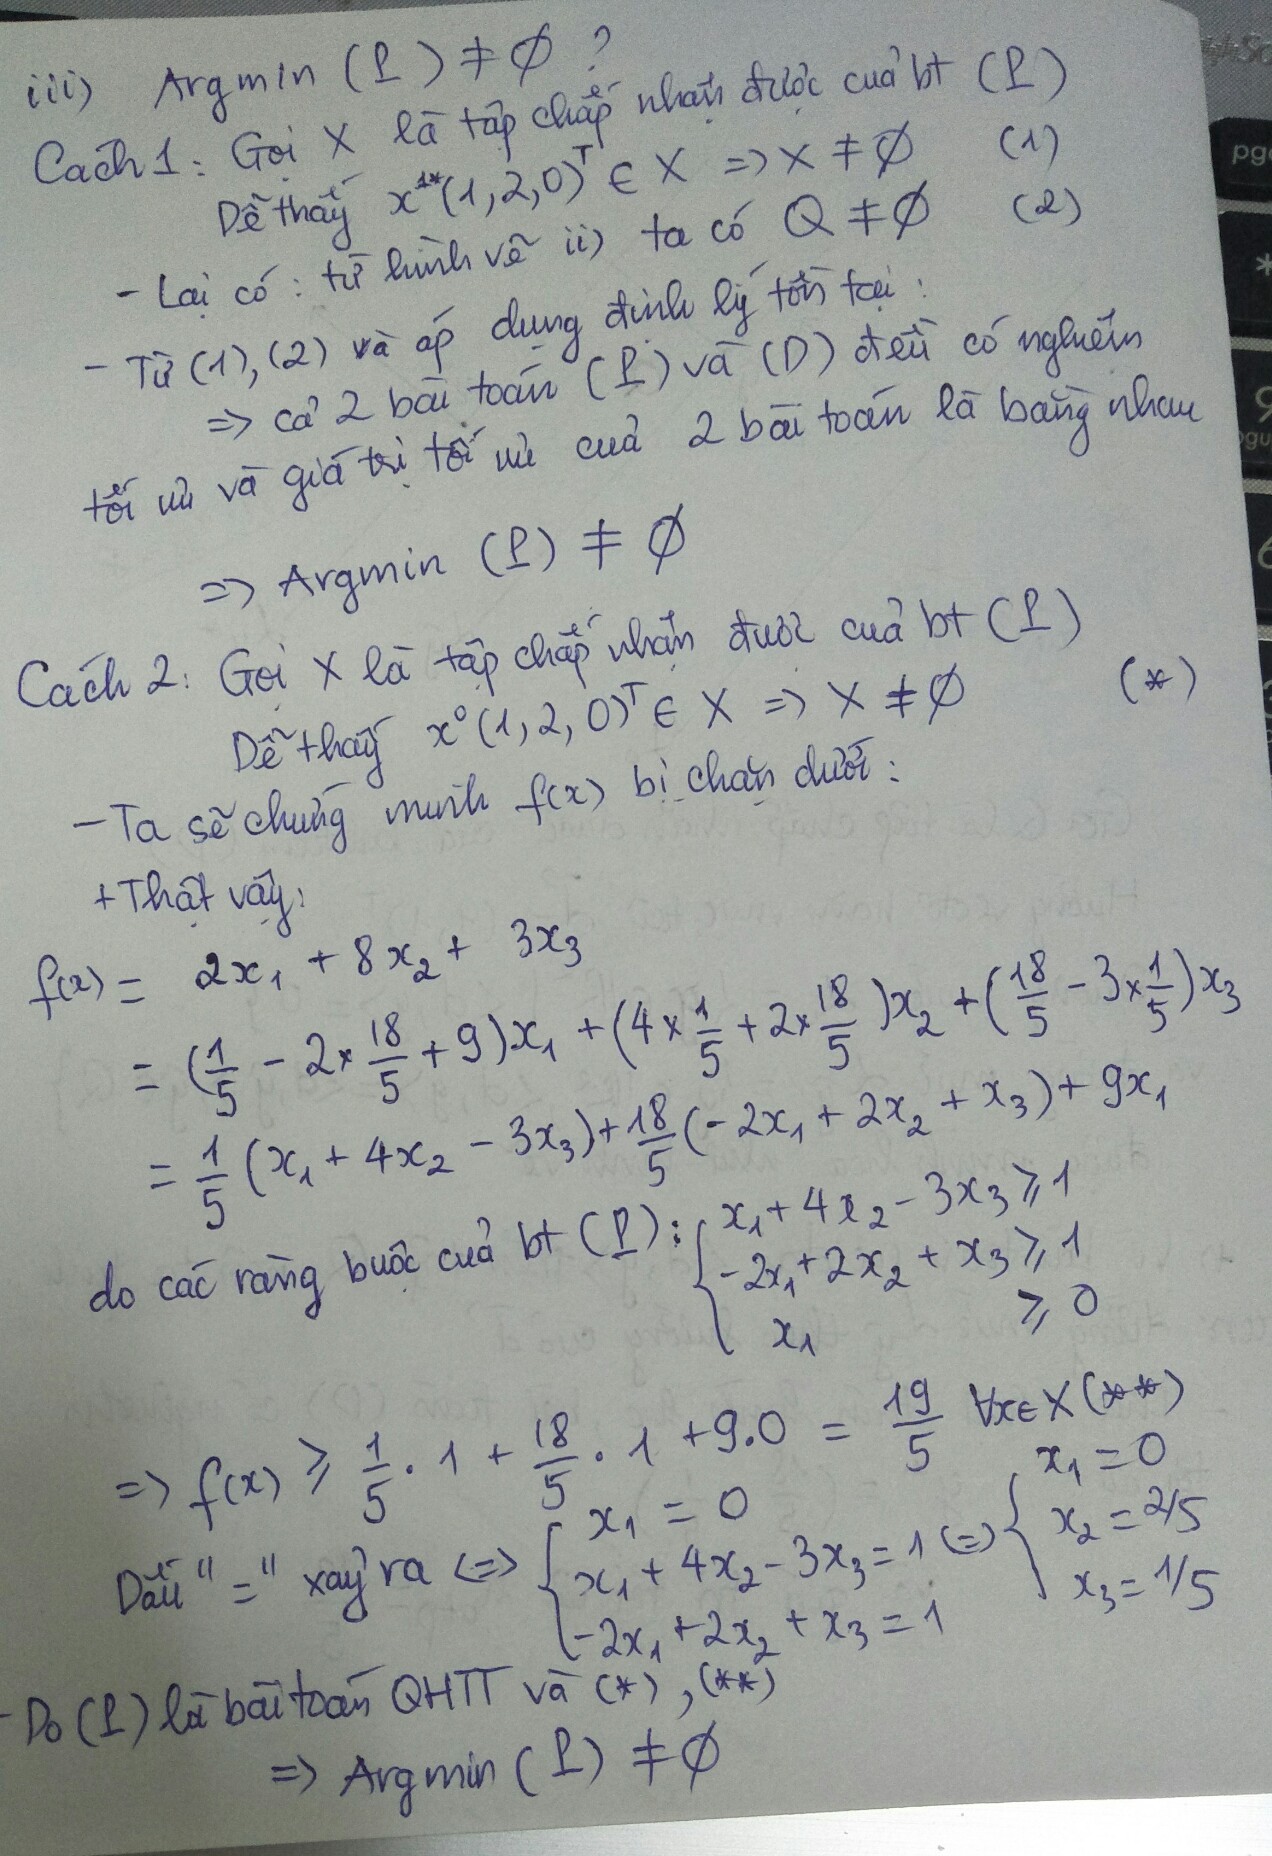 iii) Argmin (P) ≠ ∅ ?
Cách 1: Gọi X là tập chấp nhận được của bt (P)
Dễ thấy x¹*(1,2,0)ᵀ ∈ X => X ≠ ∅ (1)
- Lại có: từ hình vẽ ii) ta có Q ≠ ∅ (2)
- Từ (1), (2) và áp dụng định lý tồn tại:
=> cả 2 bài toán (P) và (D) đều có nghiệm
tối ưu và giá trị tối ưu của 2 bài toán là bằng nhau
=> Argmin (P) ≠ ∅
Cách 2: Gọi X là tập chấp nhận được của bt (P)
Dễ thấy x⁰(1,2,0)ᵀ ∈ X => X ≠ ∅ (*)
- Ta sẽ chứng minh f(x) bị chặn dưới:
+ Thật vậy:
f(x) = 2x₁ + 8x₂ + 3x₃
= (1/5 - 2×18/5 + 9)x₁ + (4×1/5 + 2×18/5)x₂ + (18/5 - 3×1/5)x₃
= 1/5(x₁ + 4x₂ - 3x₃) + 18/5(-2x₁ + 2x₂ + x₃) + 9x₁
do các ràng buộc của bt (P): { x₁ + 4x₂ - 3x₃ ≥ 1
-2x₁ + 2x₂ + x₃ ≥ 1
x₁ ≥ 0
=> f(x) ≥ 1/5 . 1 + 18/5 . 1 + 9.0 = 19/5 ∀x∈X (**)
Dấu "=" xảy ra <=> { x₁ = 0
x₁ + 4x₂ - 3x₃ = 1
-2x₁ + 2x₂ + x₃ = 1
<=> { x₁ = 0
x₂ = 2/5
x₃ = 1/5
- Do (P) là bài toán QHTT và (*), (**)
=> Argmin (P) ≠ ∅